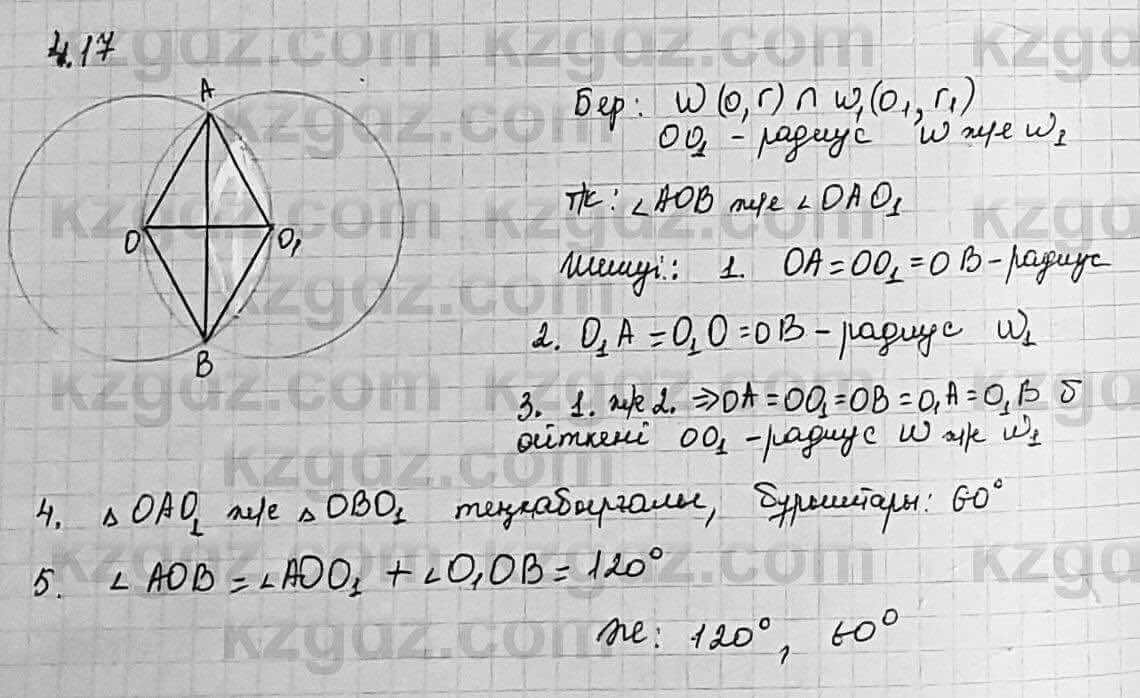 4.17
A
O
O₁
B
Бер: W (O, r) ∩ W₁(O₁, r₁)
OO₁ - радиус W ж/е W₁
Т/к: ∠AOB ж/е ∠OAO₁
Шешуі: 1. OA = OO₁ = OB - радиус
2. O₁A = O₁O = OB - радиус W₁
3. 1. ж/е 2. ⇒ OA = OO₁ = OB = O₁A = O₁B б
өйткені OO₁ - радиус W ж/е W₁
4. △ OAO₁ ж/е △ OBO₁ теңқабырғалы, бұрыштары: 60°
5. ∠ AOB = ∠AOO₁ + ∠O₁OB = 120°
Ж/е: 120°, 60°
kzgdz.com